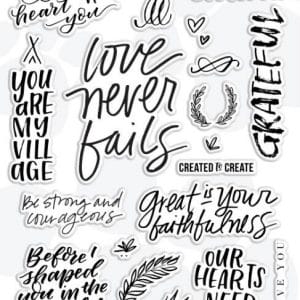 heart you
GRATEFUL
YOU
ARE
MY
VILL
AGE
love
never
fails
CREATED to CREATE
Be strong and
courageous
great is Your
faithfulness
Before I
shaped
you in the
OUR
HEARTS
NEED
VE YOU